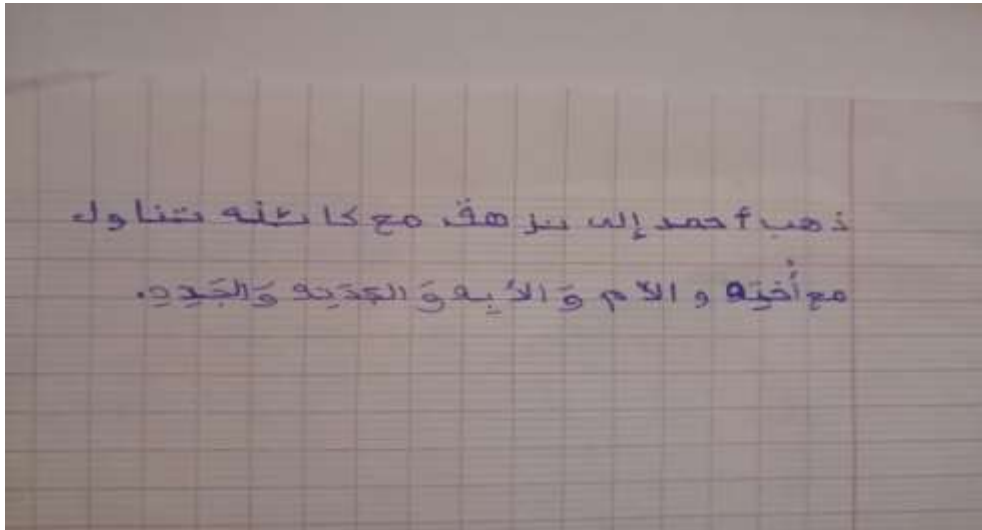 ذهب أحمد إلى نزهة مع كائلته تناول
مع أُختِه و الأم وَ الأبِ وَ الجدَيه وَ الجَدِ.